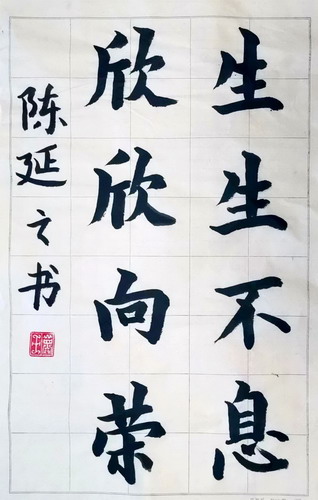 生生不息
欣欣向荣
陈延之书